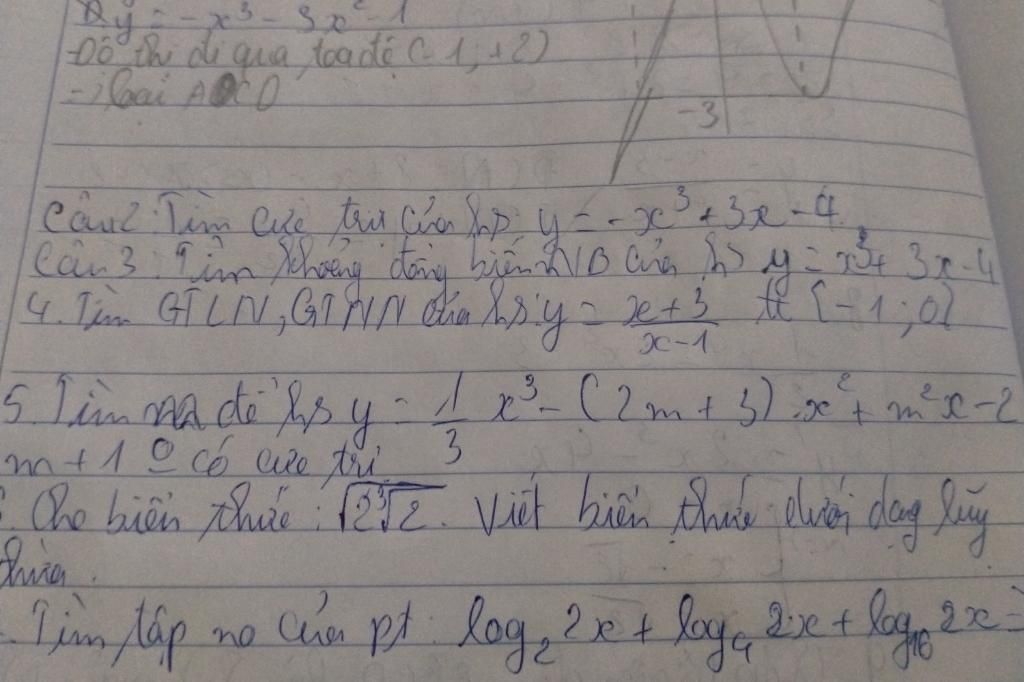 y = -x³ - 3x² - 1
-Đồ thị đi qua toạ độ (-1, +2)
-3
=> loại A C D
Câu 2: Tìm cực trị của hs y = -x³ + 3x - 4
Câu 3: Tìm khoảng đồng biến NB của hs y = x³ + 3x - 4
4. Tìm GTLN, GTNN của hs: y = (x+3)/(x-1) tt [-1; 0]
5 Tìm m để hs y = 1/3 x³ - (2m + 3).x² + m²x - 2
m + 1 o có cực trị
. Cho biến thức: √(2∛2). Viết biến thức dưới dạng lũy
thừa.
. Tìm tập no của pt: log₂ 2x + log₄ 2x + log₁₆ 2x =